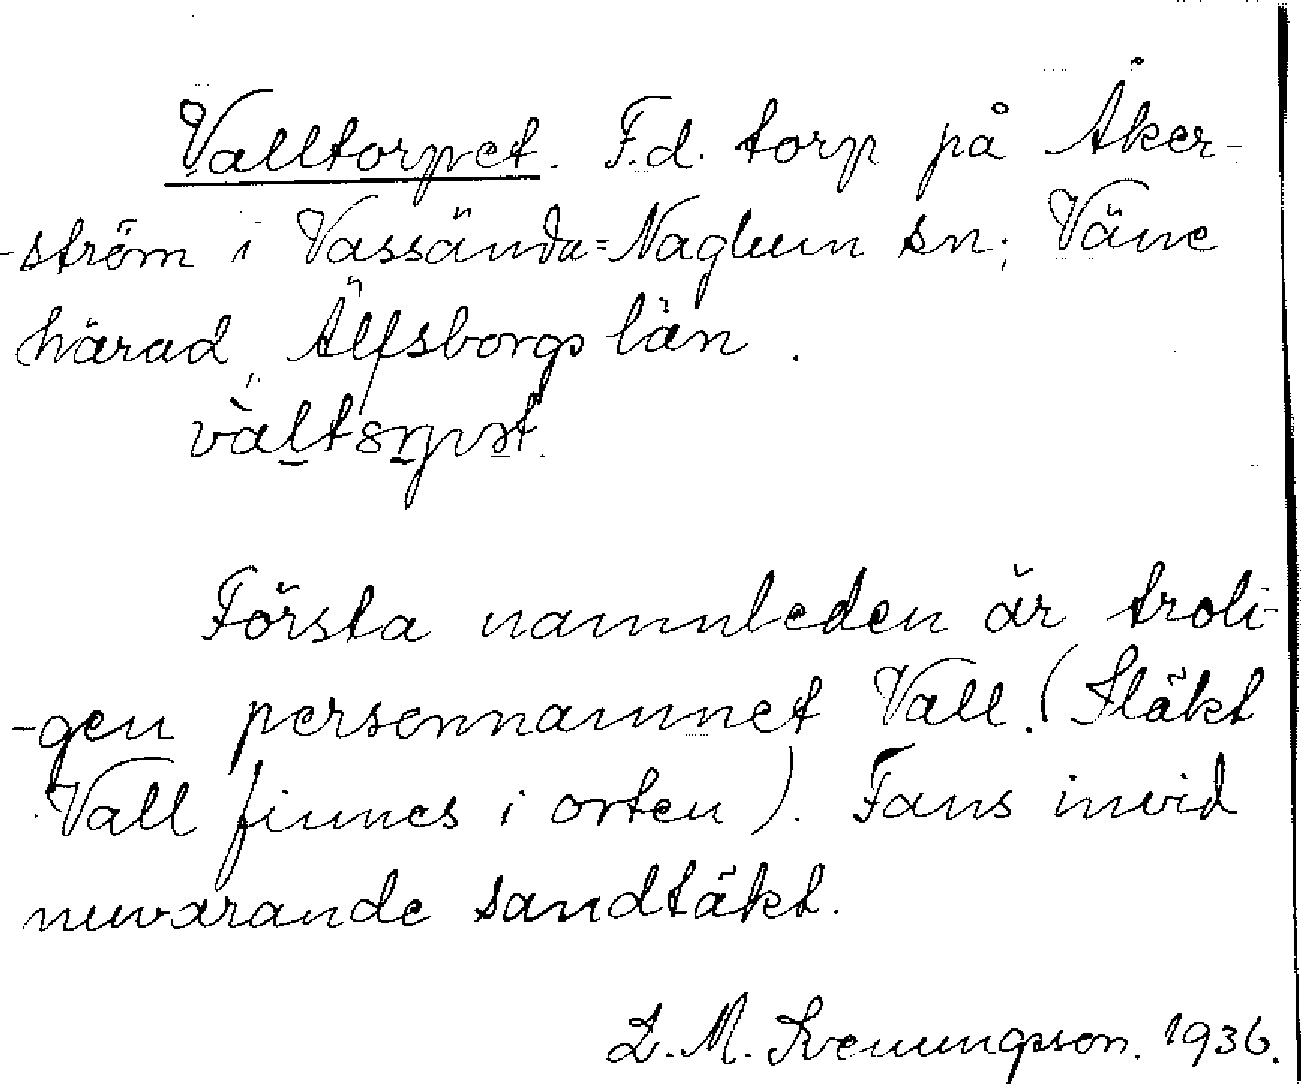 Valltorpet. F.d. torp på Åker-
-ström i Vassända=Naglum sn; Väne
härad, Älfsborgs län.
Första namnleden är troli-
-gen personnamnet Vall. (Släkt
Vall finnes i orten). Fans invid
nuvarande sandtäkt.
L. M. Svenungsson. 1936.